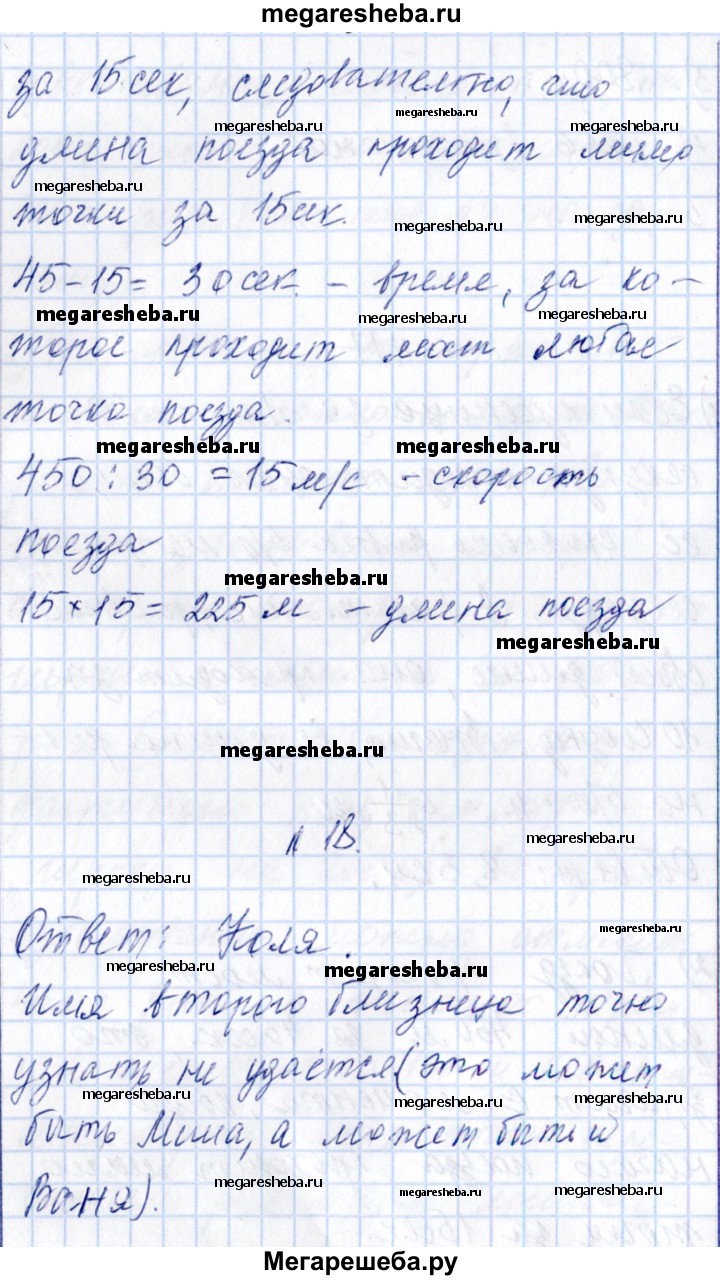 megaresheba.ru
за 15 сек, следователтно, что
megaresheba.ru
megaresheba.ru megaresheba.ru
длина поезда проходит мимо
megaresheba.ru
точки за 15сек.
megaresheba.ru megaresheba.ru
45-15= 30сек. - время, за ко-
megaresheba.ru megaresheba.ru megaresheba.ru
торое проходит мост любая
точка поезда.
megaresheba.ru megaresheba.ru
450 : 30 = 15м/с - скорость
поезда
megaresheba.ru
15×15= 225м - длина поезда
megaresheba.ru
megaresheba.ru
п 18.
megaresheba.ru
megaresheba.ru
Ответ: Коля.
megaresheba.ru
megaresheba.ru megaresheba.ru
Имя второго близнеца точно
узнать не удастся (это может
megaresheba.ru megaresheba.ru megaresheba.ru
быть Миша, а может быть и
Ваня).
megaresheba.ru megaresheba.ru megaresheba.ru
Мегарешеба.ру